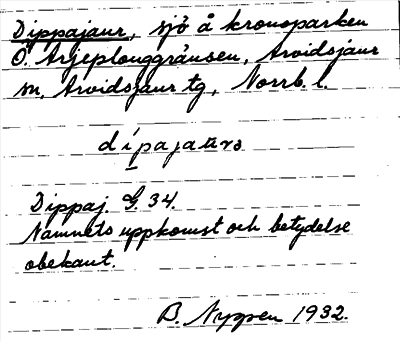 Dippajaur, sjö å kronoparken
Ö. Arjeplouggränsen, Arvidsjaur
sn, Arvidsjaur tg, Norrb. l.
dípajaurə
Dippaj. G. 34.
Namnets uppkomst och betydelse
obekant.
B. Nygren 1932.